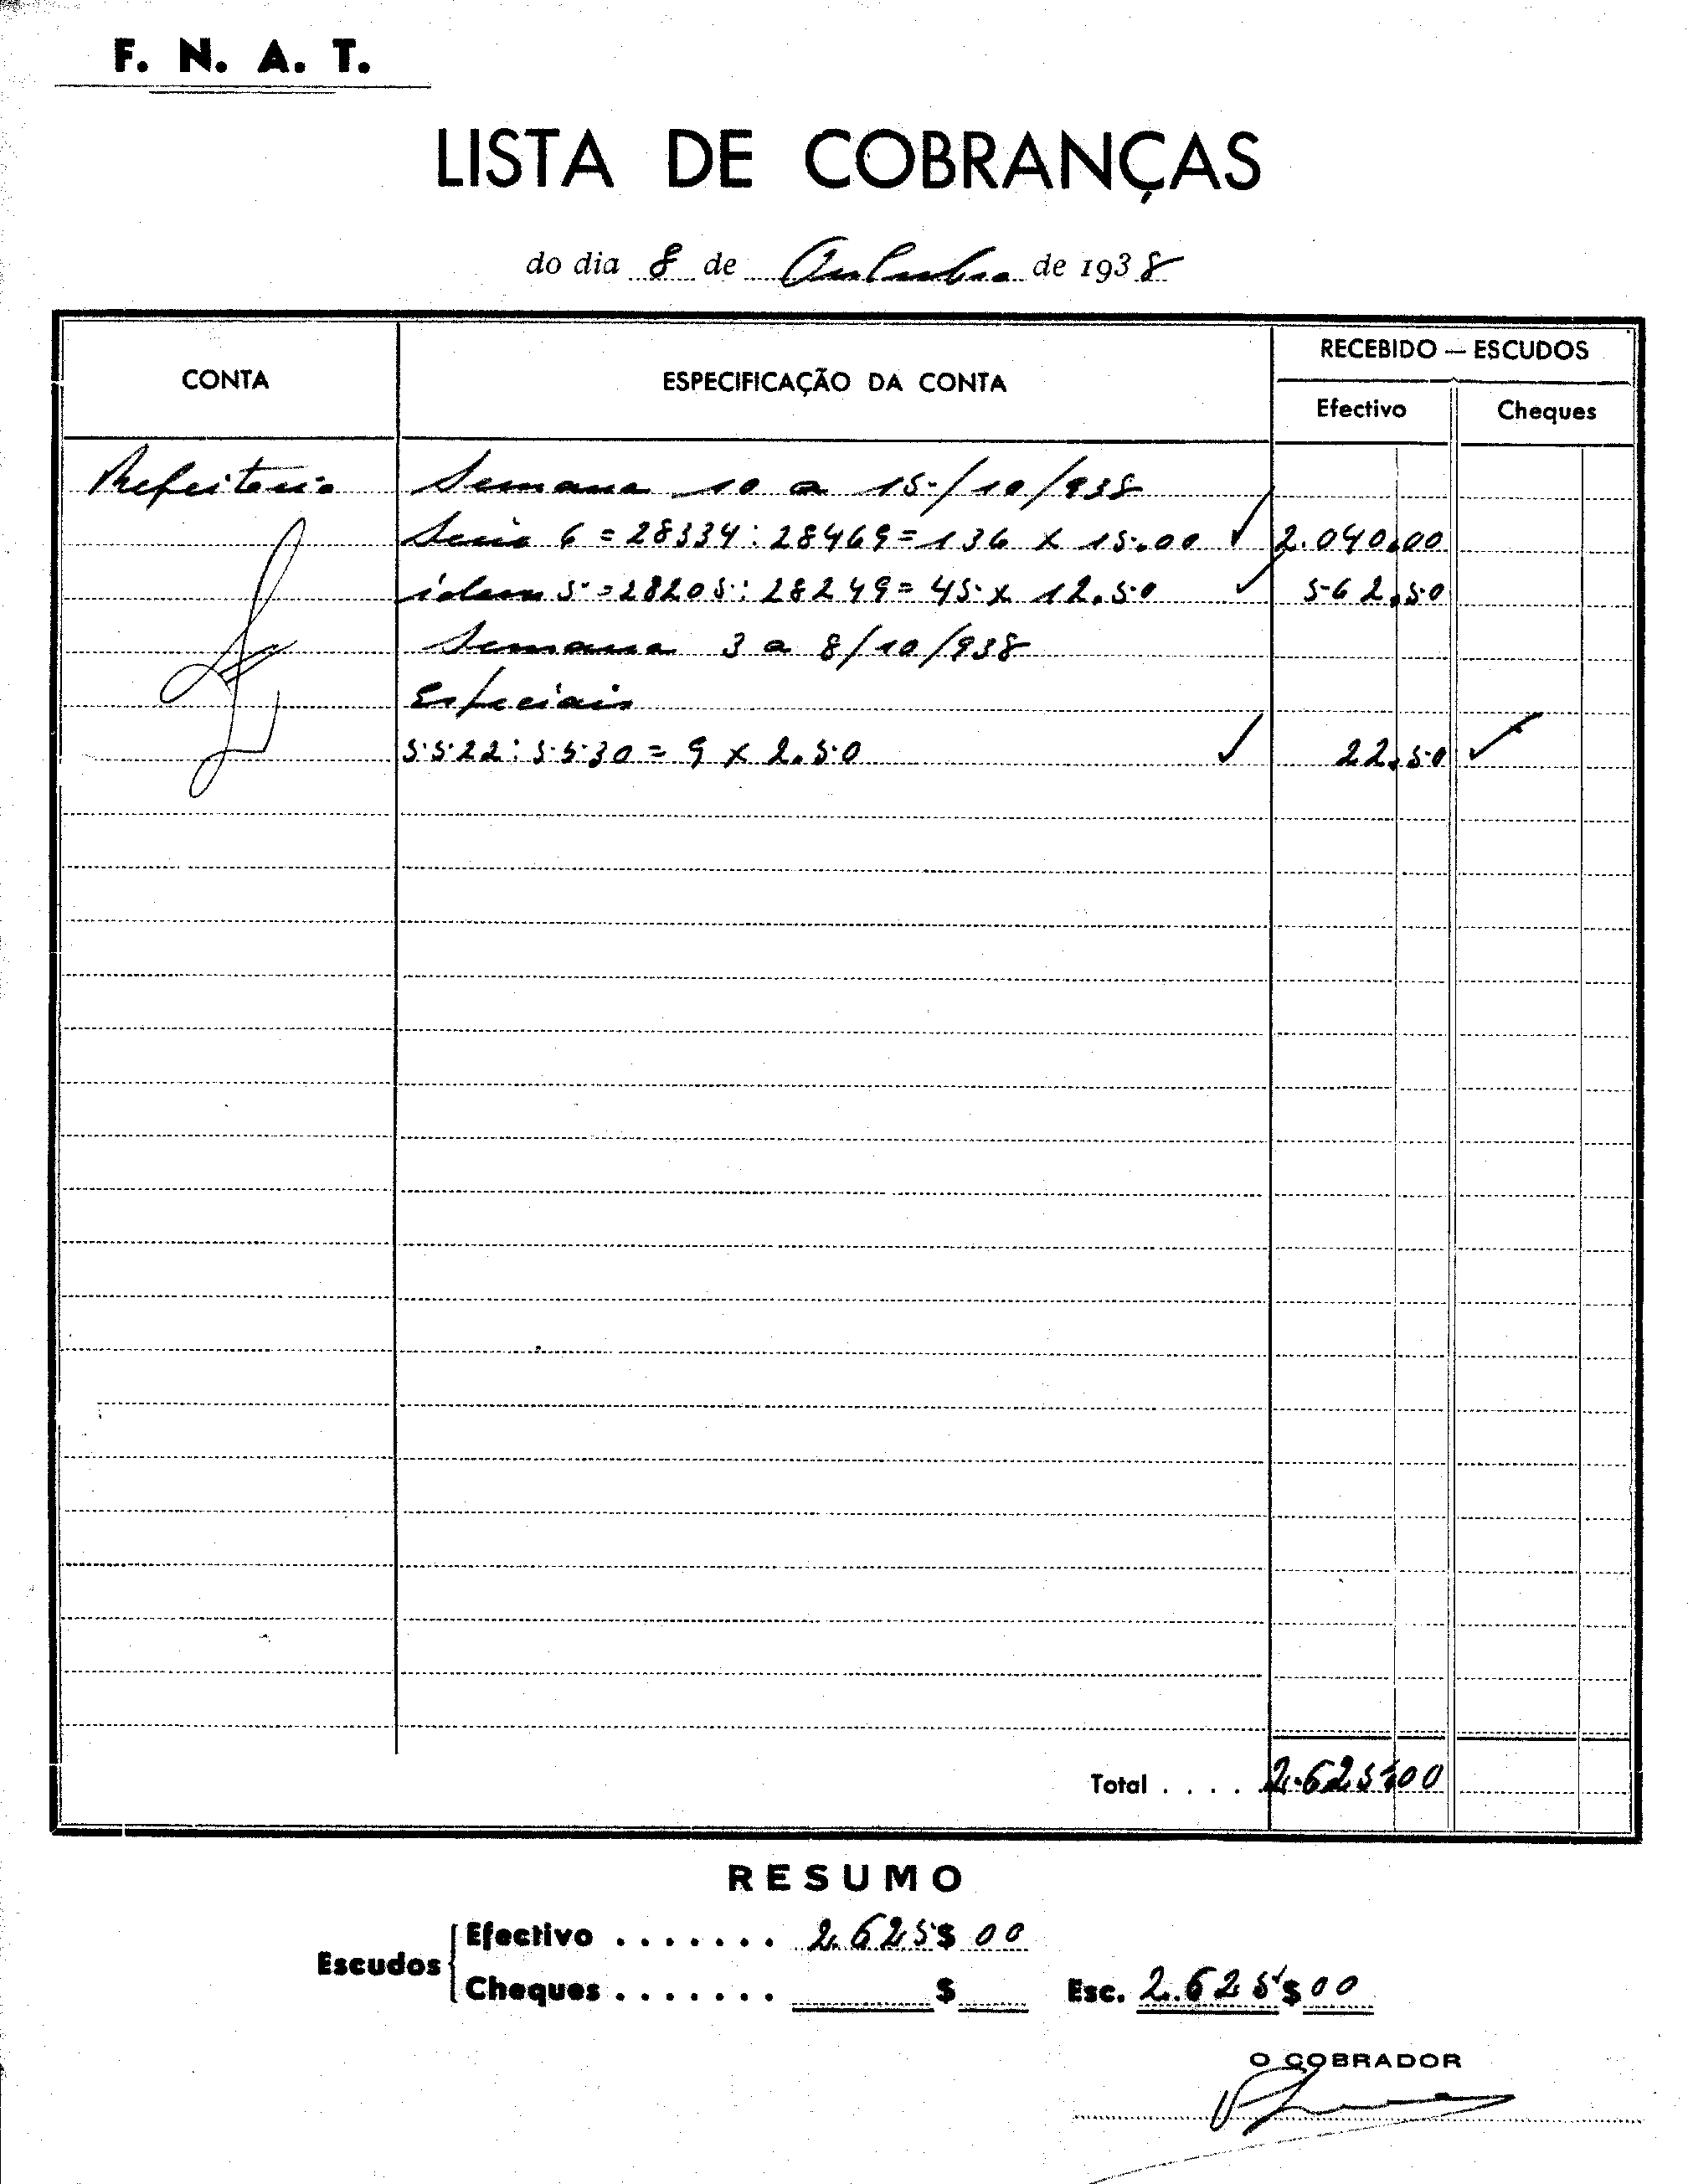 F. N. A. T.
LISTA DE COBRANÇAS
do dia 8 de Outubro de 1938
CONTA ESPECIFICAÇÃO DA CONTA RECEBIDO — ESCUDOS
Efectivo Cheques
Refeitorio Semana 10 a 15/10/938
Serie 6 = 28334 : 28469 = 136 x 15.00 ✓ 2.040.00
idem 5 = 28205 : 28249 = 45 x 12.50 ✓ 562.50
Semana 3 a 8/10/938
Especiais
5522 : 5530 = 9 x 2.50 ✓ 22.50 ✓
Total . . . . 2.625$00
RESUMO
Escudos
Efectivo . . . . . . . 2.625$00
Cheques . . . . . . . $ Esc. 2.625$00
O COBRADOR